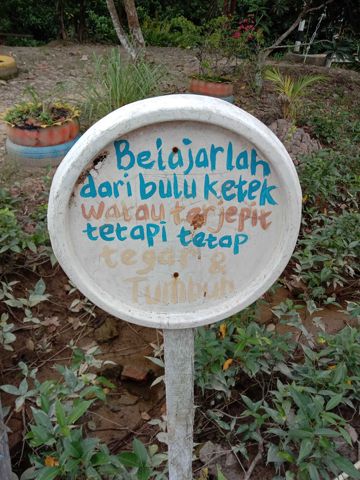 Belajarlah
dari bulu ketek
Walau terjepit
tetapi tetap
tegar &
Tumbuh